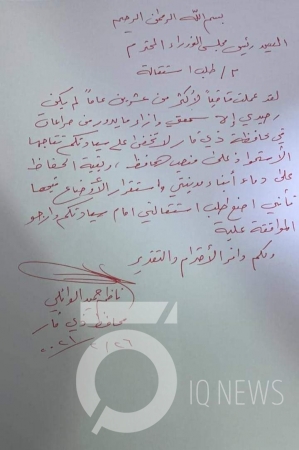 بسم الله الرحمن الرحيم
السيد رئيس مجلس الوزراء المحترم
م / طلب استقالة
لقد عملت قاضياً لأكثر من عشرين عاماً لم يكن
رصيدي إلا سمعتي وازاء ما يدور من صراعات
في محافظة ذي قار لا تخفى على سيادتكم نتاجها
الاستحواذ على منصب محافظ، وبغية الحفاظ
على دماء أبناء مدينتي واستقرار الأوضاع فيها
فأنني اضع طلب استقالتي امام سيادتكم وارجو
الموافقة عليه
ولكم وافر الأحترام والتقدير
ناظم حميد الوائلي
محافظ ذي قار
٢٠٢١/٢/٢٦
IQ NEWS